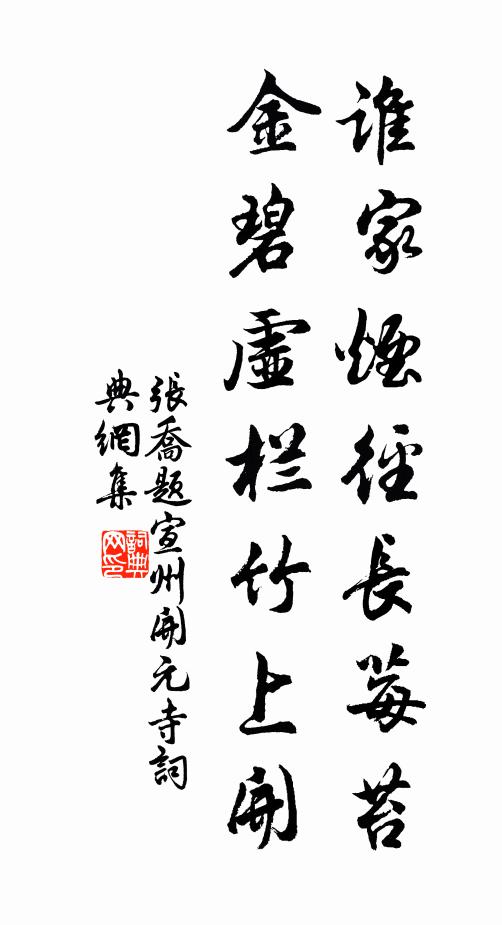 誰家煙徑長莓苔
金碧虛栏竹上開
張喬題宣州開元寺詞
典網集
詞典
网印